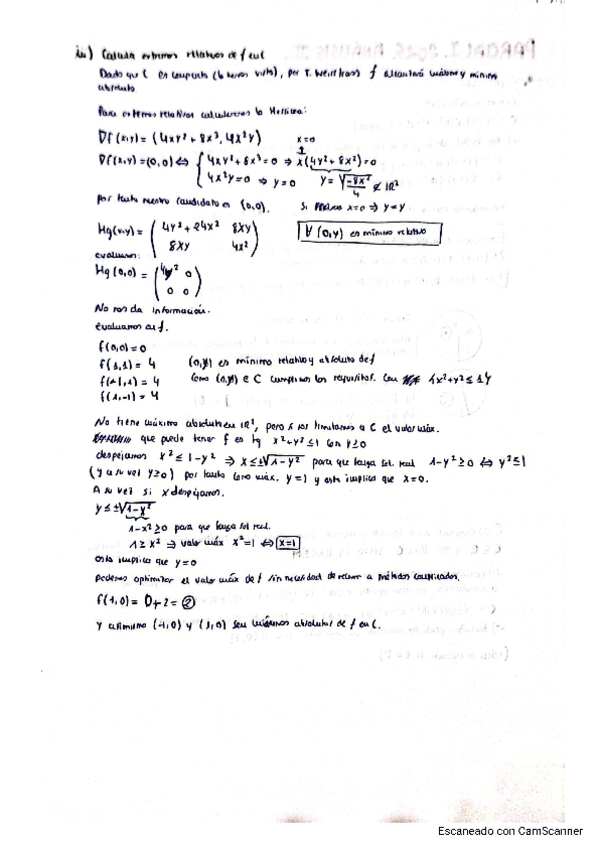 iii) Calcula extremos relativos de f en C
Dado que C es compacto (lo hemos visto), por T. Weierstrass f alcanzará máximo y mínimo
absoluto.
Para extremos relativos calculemos la Hessiana:
∇f(x,y) = (4xy² + 8x³, 4x²y)
x=0
∇f(x,y)=(0,0) ⇔ { 4xy² + 8x³ = 0 ⇒ x(4y² + 8x²)=0
4x²y=0 ⇒ y=0 y = √(-8x²/4) ∉ ℝ²
por tanto nuestro candidato es (0,0). Si x=0 ⇒ y=y
Hg(x,y) = ( 4y² + 24x² 8xy
8xy 4x² )
∀ (0,y) es mínimo relativo
evaluamos:
Hg(0,0) = ( 4y² 0
0 0 )
No nos da información.
evaluamos en f.
f(0,0)=0
f(1,1) = 4 (0,y) es mínimo relativo y absoluto de f
f(-1,1) = 4 Como (0,y) ∈ C cumplimos los requisitos. Con {x²+y² ≤ 1}
f(1,-1) = 4
No tiene máximo absoluto en ℝ², pero si nos limitamos a C el valor máx.
que puede tener f es tq x²+y² ≤ 1 con y≥0
despejamos x² ≤ 1-y² ⇒ x ≤ ±√(1-y²) para que tenga sol. real 1-y² ≥ 0 ⇔ y² ≤ 1
(y a su vez y≥0) por tanto como máx. y=1 y esto implica que x=0.
A su vez si x despejamos.
y ≤ ±√(1-x²)
1-x² ≥ 0 para que tenga sol real.
1 ≥ x² ⇒ valor máx x²=1 ⇔ x=1
esto implica que y=0
podemos optimizar el valor máx de f sin necesidad de recurrir a métodos complicados.
f(1,0) = 0+2 = 2
y asimismo (-1,0) y (1,0) son máximos absolutos de f en C.
Escaneado con CamScanner